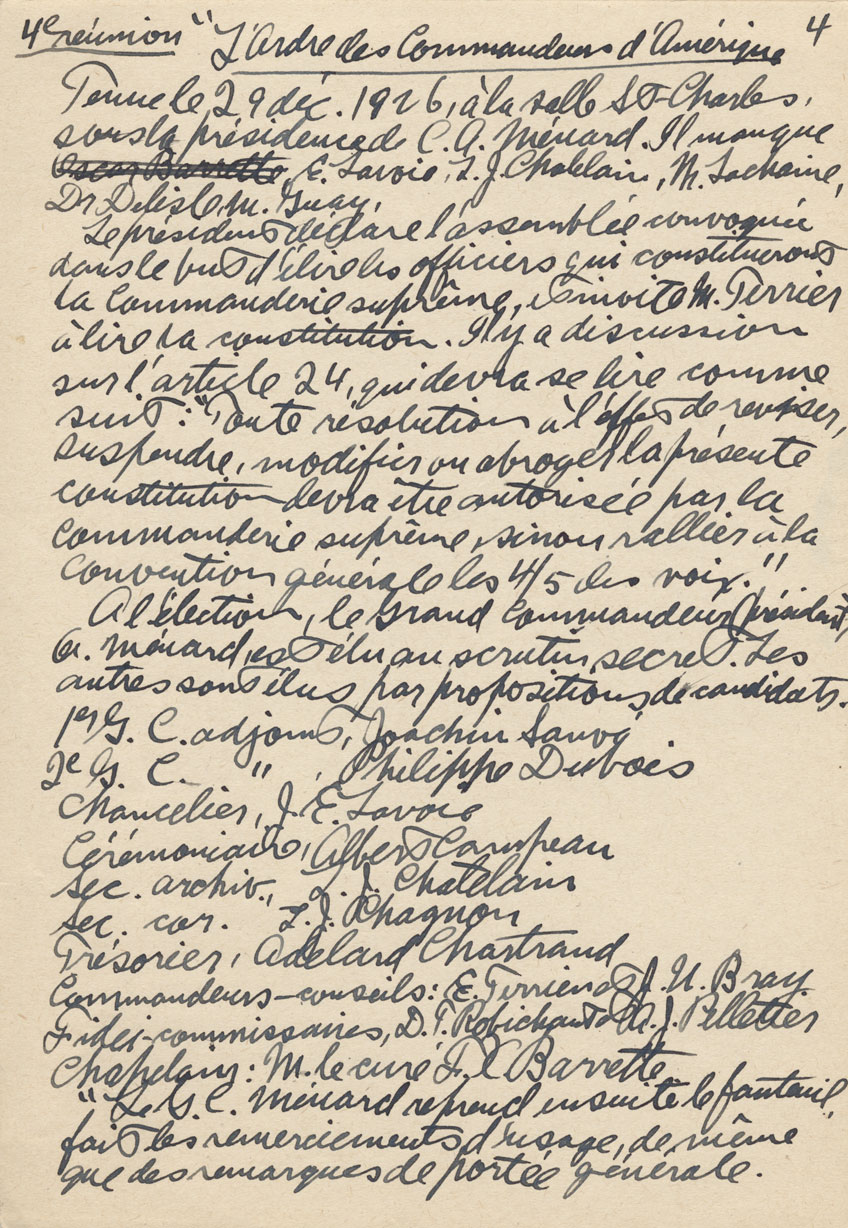 4e réunion "L'Ordre des Commandeurs d'Amérique 4
Tenue le 29 déc. 1926, à la salle St-Charles,
sous la présidence de C. A. Ménard. Il manque
Oscar Barrette, E. Lavoie, L. J. Chatelain, M. Lachaine,
Dr Delisle, M. Guay.
Le président déclare l'assemblée convoquée
dans le but d'élire les officiers qui constitueront
la Commanderie suprême, et invite M. Terrien
à lire la constitution. Il y a discussion
sur l'article 24, qui devra se lire comme
suit: "Toute résolution à l'effet de reviser,
suspendre, modifier ou abroger la présente
constitution devra être autorisée par la
commanderie suprême, sinon rallier à la
convention générale les 4/5 des voix."
A l'élection, le Grand Commandeur (président,
A. Ménard, est élu au scrutin secret. Les
autres sont élus par propositions de candidats.
1er G. C. adjoint, Joachin Sauvé
2e G. C. " , Philippe Dubois
Chancelier, J. E. Lavoie
Cérémoniaire, Albert Campeau
Sec. archiv., L. J. Chatelain
Sec. cor. L. J. Chagnon
Trésorier, Adélard Chartrand
Commandeurs-conseils: E. Terrien et J. U. Bray.
Fidei-commissaires, D. T. Robichaud et A. J. Pelletier
Chapelain: M. le curé F. X. Barrette
"Le G. C. Ménard reprend ensuite le fauteuil,
fait les remerciements d'usage, de même
que des remarques de portée générale.